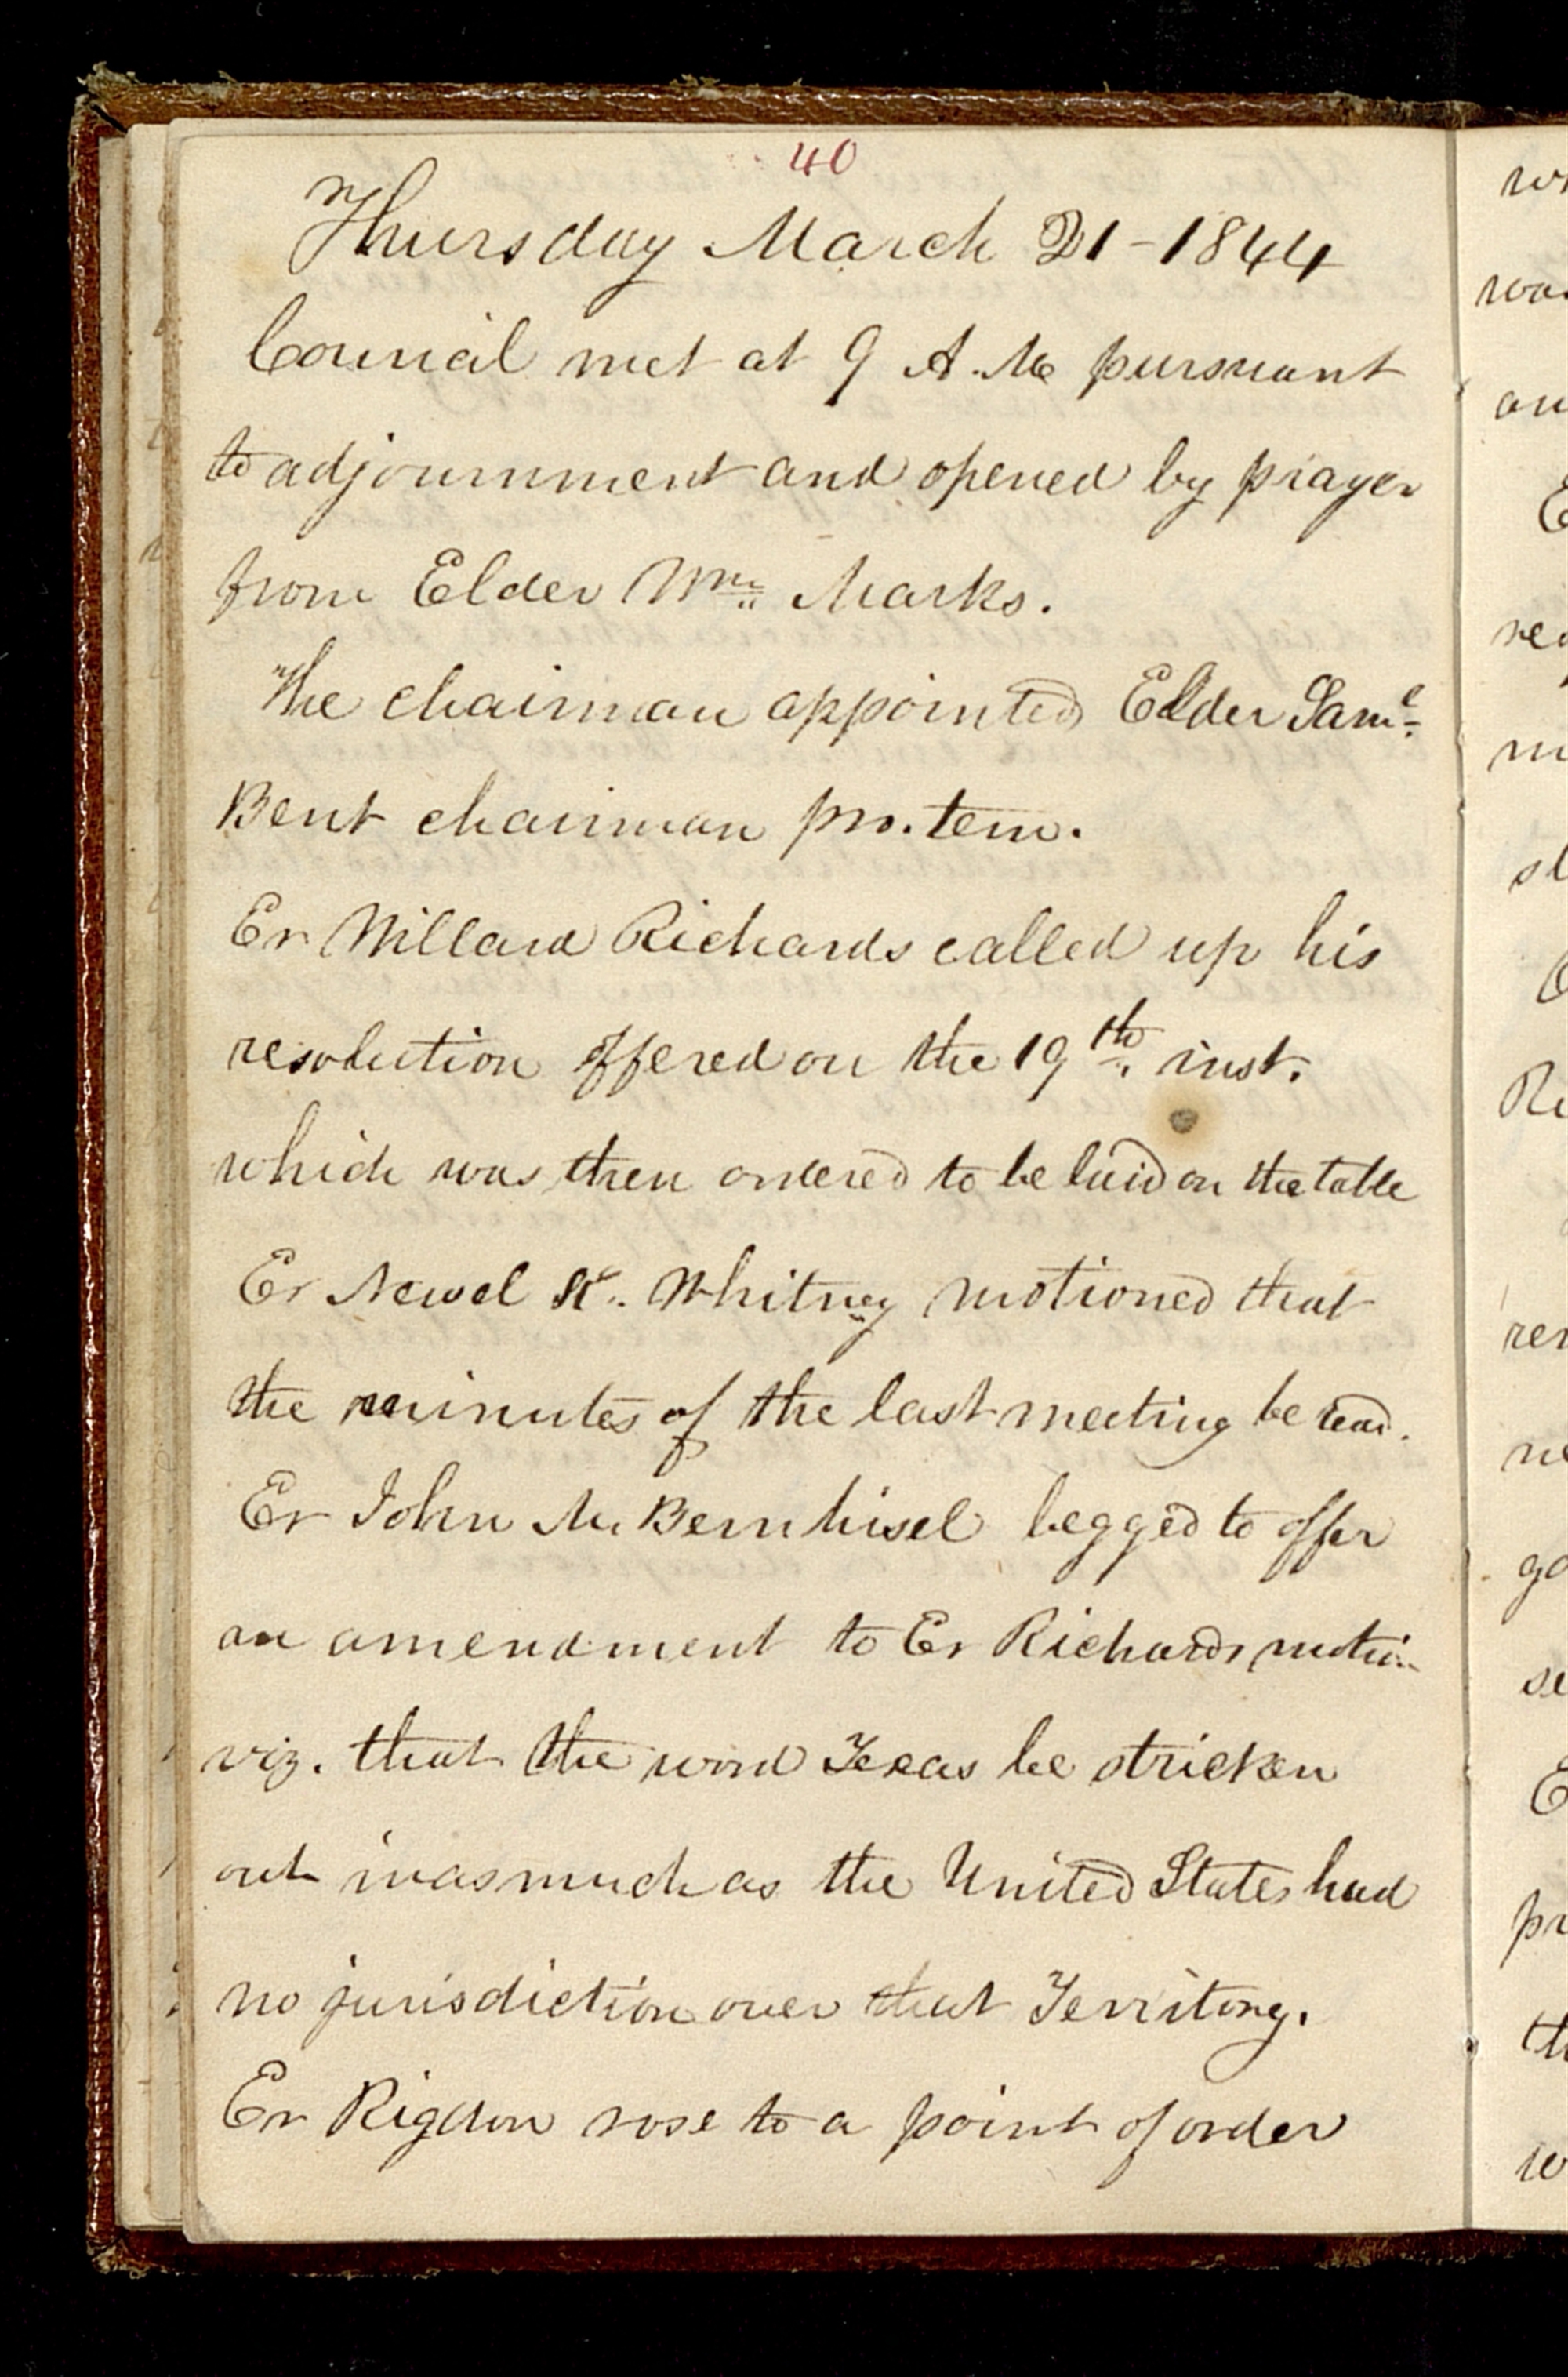 40
Thursday March 21-1844
Council met at 9 A.M pursuant
to adjournment and opened by prayer
from Elder Wm. Marks.
The chairman appointed Elder Saml.
Bent chairman pro. tem.
Er Willard Richards called up his
resolution offered on the 19th. inst.
which was then ordered to be laid on the table
Er Newel K. Whitney motioned that
the minutes of the last meeting be read.
Er John M. Bernhisel begged to offer
an amendment to Er Richards motion
viz. that the word Texas be stricken
out inasmuch as the United States had
no jurisdiction over that Territory.
Er Rigdon rose to a point of order